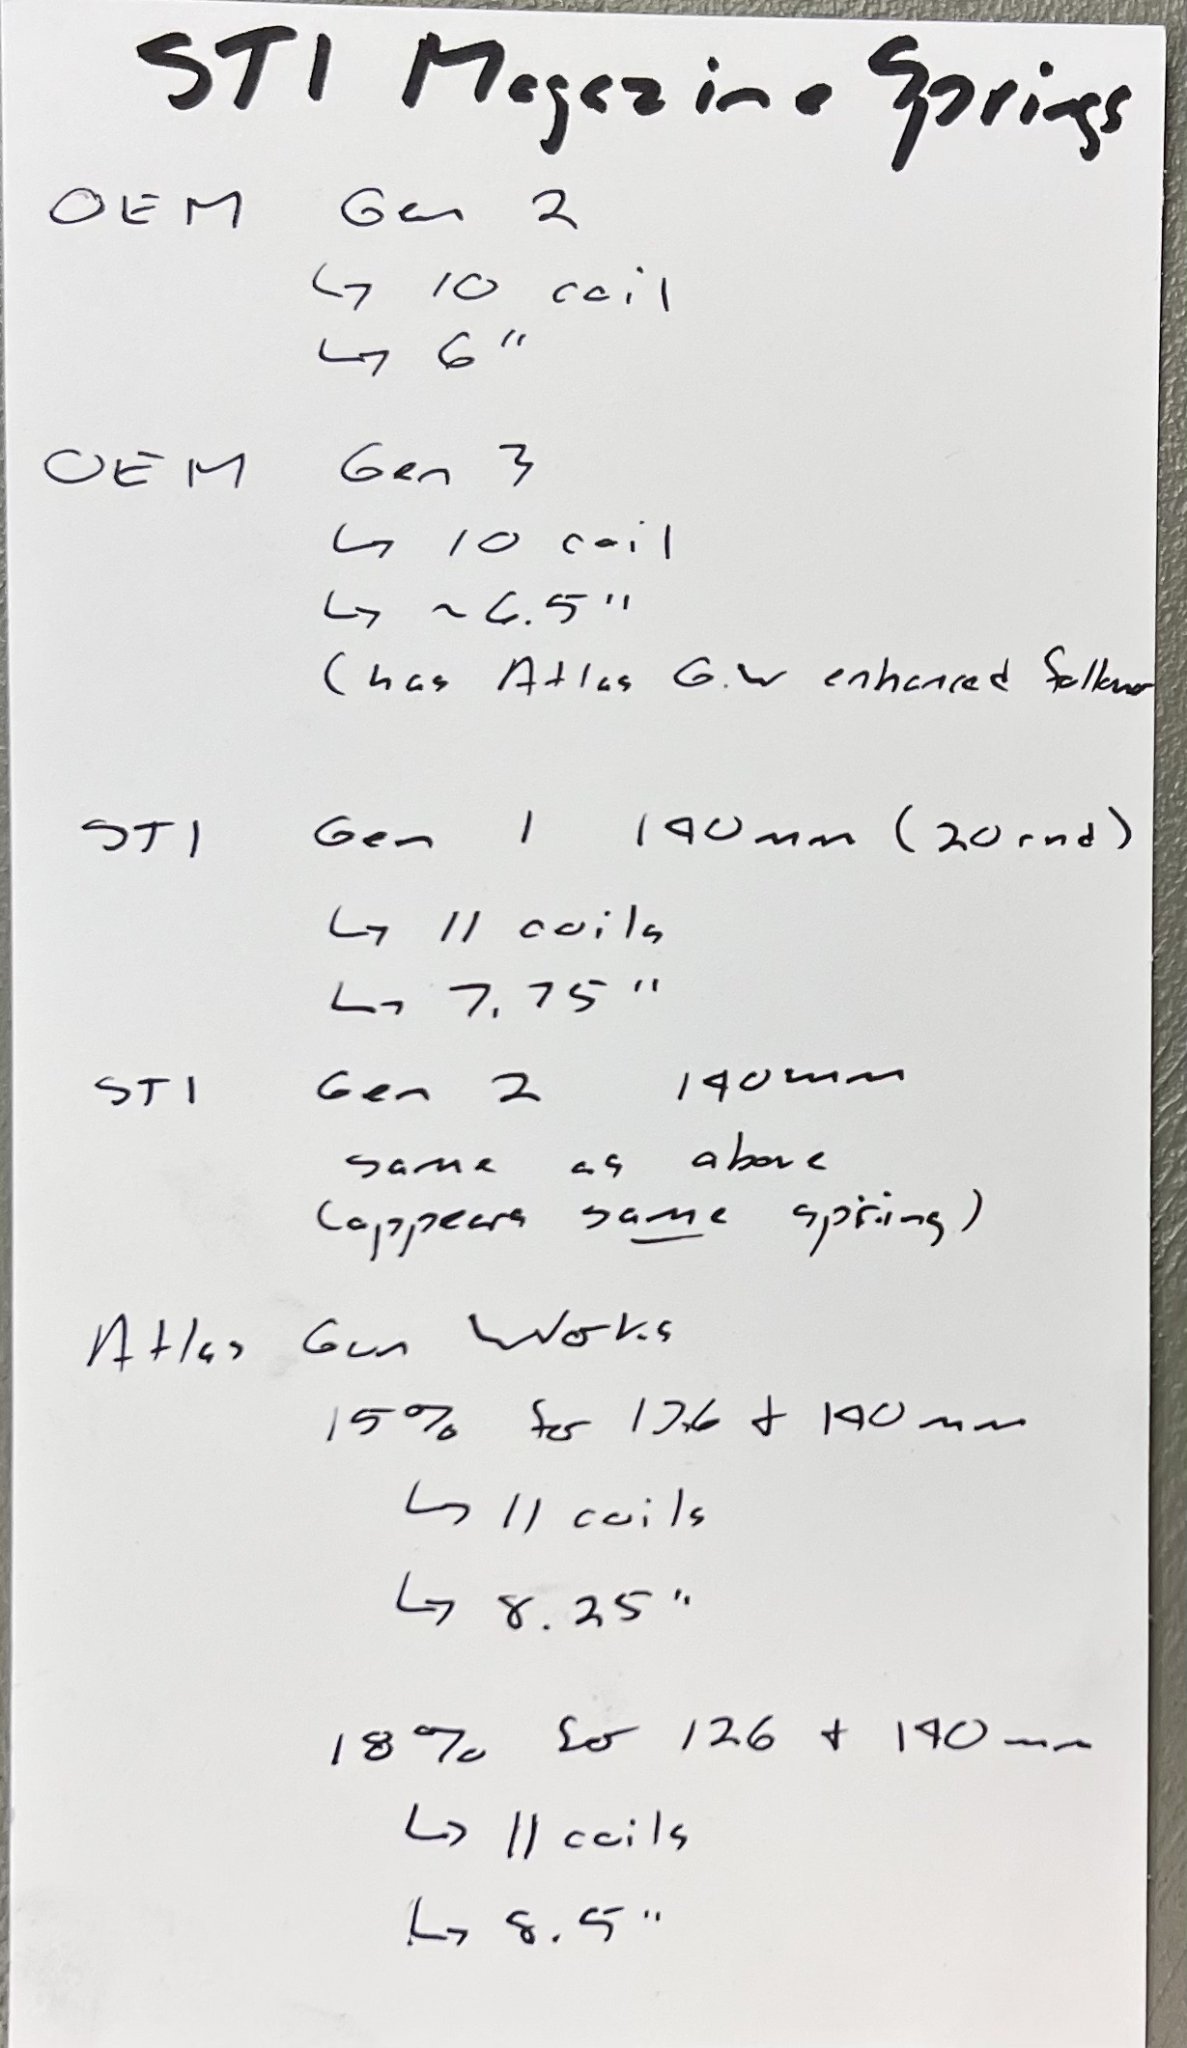 STI Magazine Springs
OEM Gen 2
↳ 10 coil
↳ 6"
OEM Gen 3
↳ 10 coil
↳ ~6.5"
(has Atlas G.W enhanced follower
STI Gen 1 140mm (20rnd)
↳ 11 coils
↳ 7.75"
STI Gen 2 140mm
same as above
(appears same spring)
Atlas Gun Works
15% for 126 + 140mm
↳ 11 coils
↳ 8.25"
18% for 126 + 140mm
↳ 11 coils
↳ 8.5"